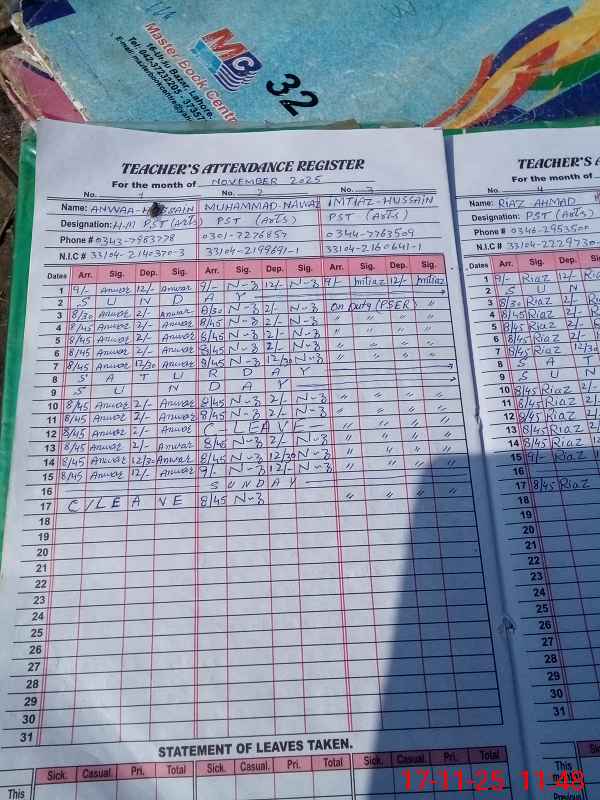 11/4
MC
Master Book Centre
16-Urdu Bazar, Lahore.
Tel: 042-37232205 - 37357
E-mail: masterbookcentre@yah
32
TEACHER'S ATTENDANCE REGISTER
For the month of NOVEMBER 2025
No. 1 No. 2 No. 3
Name: ANWAR-HUSSAIN MUHAMMAD NAWAZ IMTIAZ-HUSSAIN
Designation: H.M PST (Arts) PST (Arts) PST (Arts)
Phone # 0343-7983778 0301-7276857 0344-7763509
N.I.C # 33104-2140370-3 33104-2199691-1 33104-2160641-1
Dates Arr. Sig. Dep. Sig. Arr. Sig. Dep. Sig. Arr. Sig. Dep. Sig.
1 9/- Anwar 12/- Anwar 9/- N-Z 12/- N-Z 9/- Imtiaz 12/- Imtiaz
2 S U N D A Y
3 8/30 Anwar 2/- Anwar 8/30 N-Z 2/- N-Z On Duty (PSER) "
4 8/45 Anwar 2/- Anwar 8/45 N-Z 2/- N-Z " " " "
5 8/45 Anwar 2/- Anwar 8/45 N-Z 2/- N-Z " " " "
6 8/45 Anwar 2/- Anwar 8/45 N-Z 2/- N-Z " " " "
7 8/45 Anwar 12/30 Anwar 8/45 N-Z 12/30 N-Z " " " "
8 S A T U R D A Y
9 S U N D A Y
10 8/45 Anwar 2/- Anwar 8/45 N-Z 2/- N-Z " " " "
11 8/45 Anwar 2/- Anwar 8/45 N-Z 2/- N-Z " " " "
12 8/45 Anwar 2/- Anwar C-LEAVE- " " " "
13 8/45 Anwar 2/- Anwar 8/45 N-Z 2/- N-Z " " " "
14 8/45 Anwar 12/30 Anwar 8/45 N-Z 12/30 N-Z " " " "
15 8/45 Anwar 12/- Anwar 9/- N-Z 12/- N-Z " " " "
16 SUNDAY
17 C/LEAVE 8/45 N-Z " " "
18
19
20
21
22
23
24
25
26
27
28
29
30
31
STATEMENT OF LEAVES TAKEN.
Sick. Casual. Pri. Total Sick. Casual. Pri. Total Sick. Casual. Pri. Total
This
TEACHER'S A
For the mont
No. 4
Name: RIAZ AHMAD
Designation: PST (Arts)
Phone # 0346-2953500
N.I.C # 33104-2229730-
Dates Arr. Sig. Dep. Si
1 9/- Riaz 12/- Ria
2 S U N
3 8/30 Riaz 2/- R
4 8/45 Riaz 2/- R
5 8/45 Riaz 2/-
6 8/45 Riaz 2/-
7 8/45 Riaz 12/30
8 S A
9 S U N
10 8/45 Riaz 2/-
11 8/45 Riaz 2/-
12 8/45 Riaz 2/-
13 8/45 Riaz 2/-
14 8/45 Riaz
15 9/- Riaz
16
17 8/45 Riaz
18
19
20
21
22
23
24
25
26
27
28
29
30
31
STA
Sick
This
17-11-25 11:48